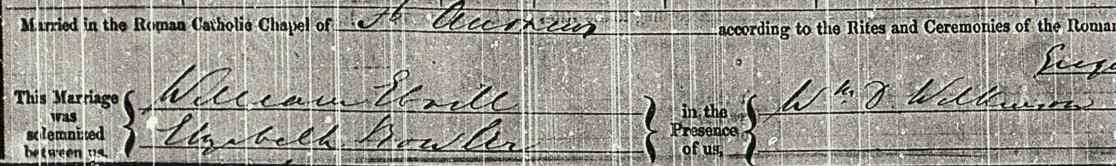 Married in the Roman Catholic Chapel of St Andrews according to the Rites and Ceremonies of the Roman
This Marriage was solemnized between us, William Ebrill
Elizabeth Bowler
in the Presence of us, Wm D. Wilkinson